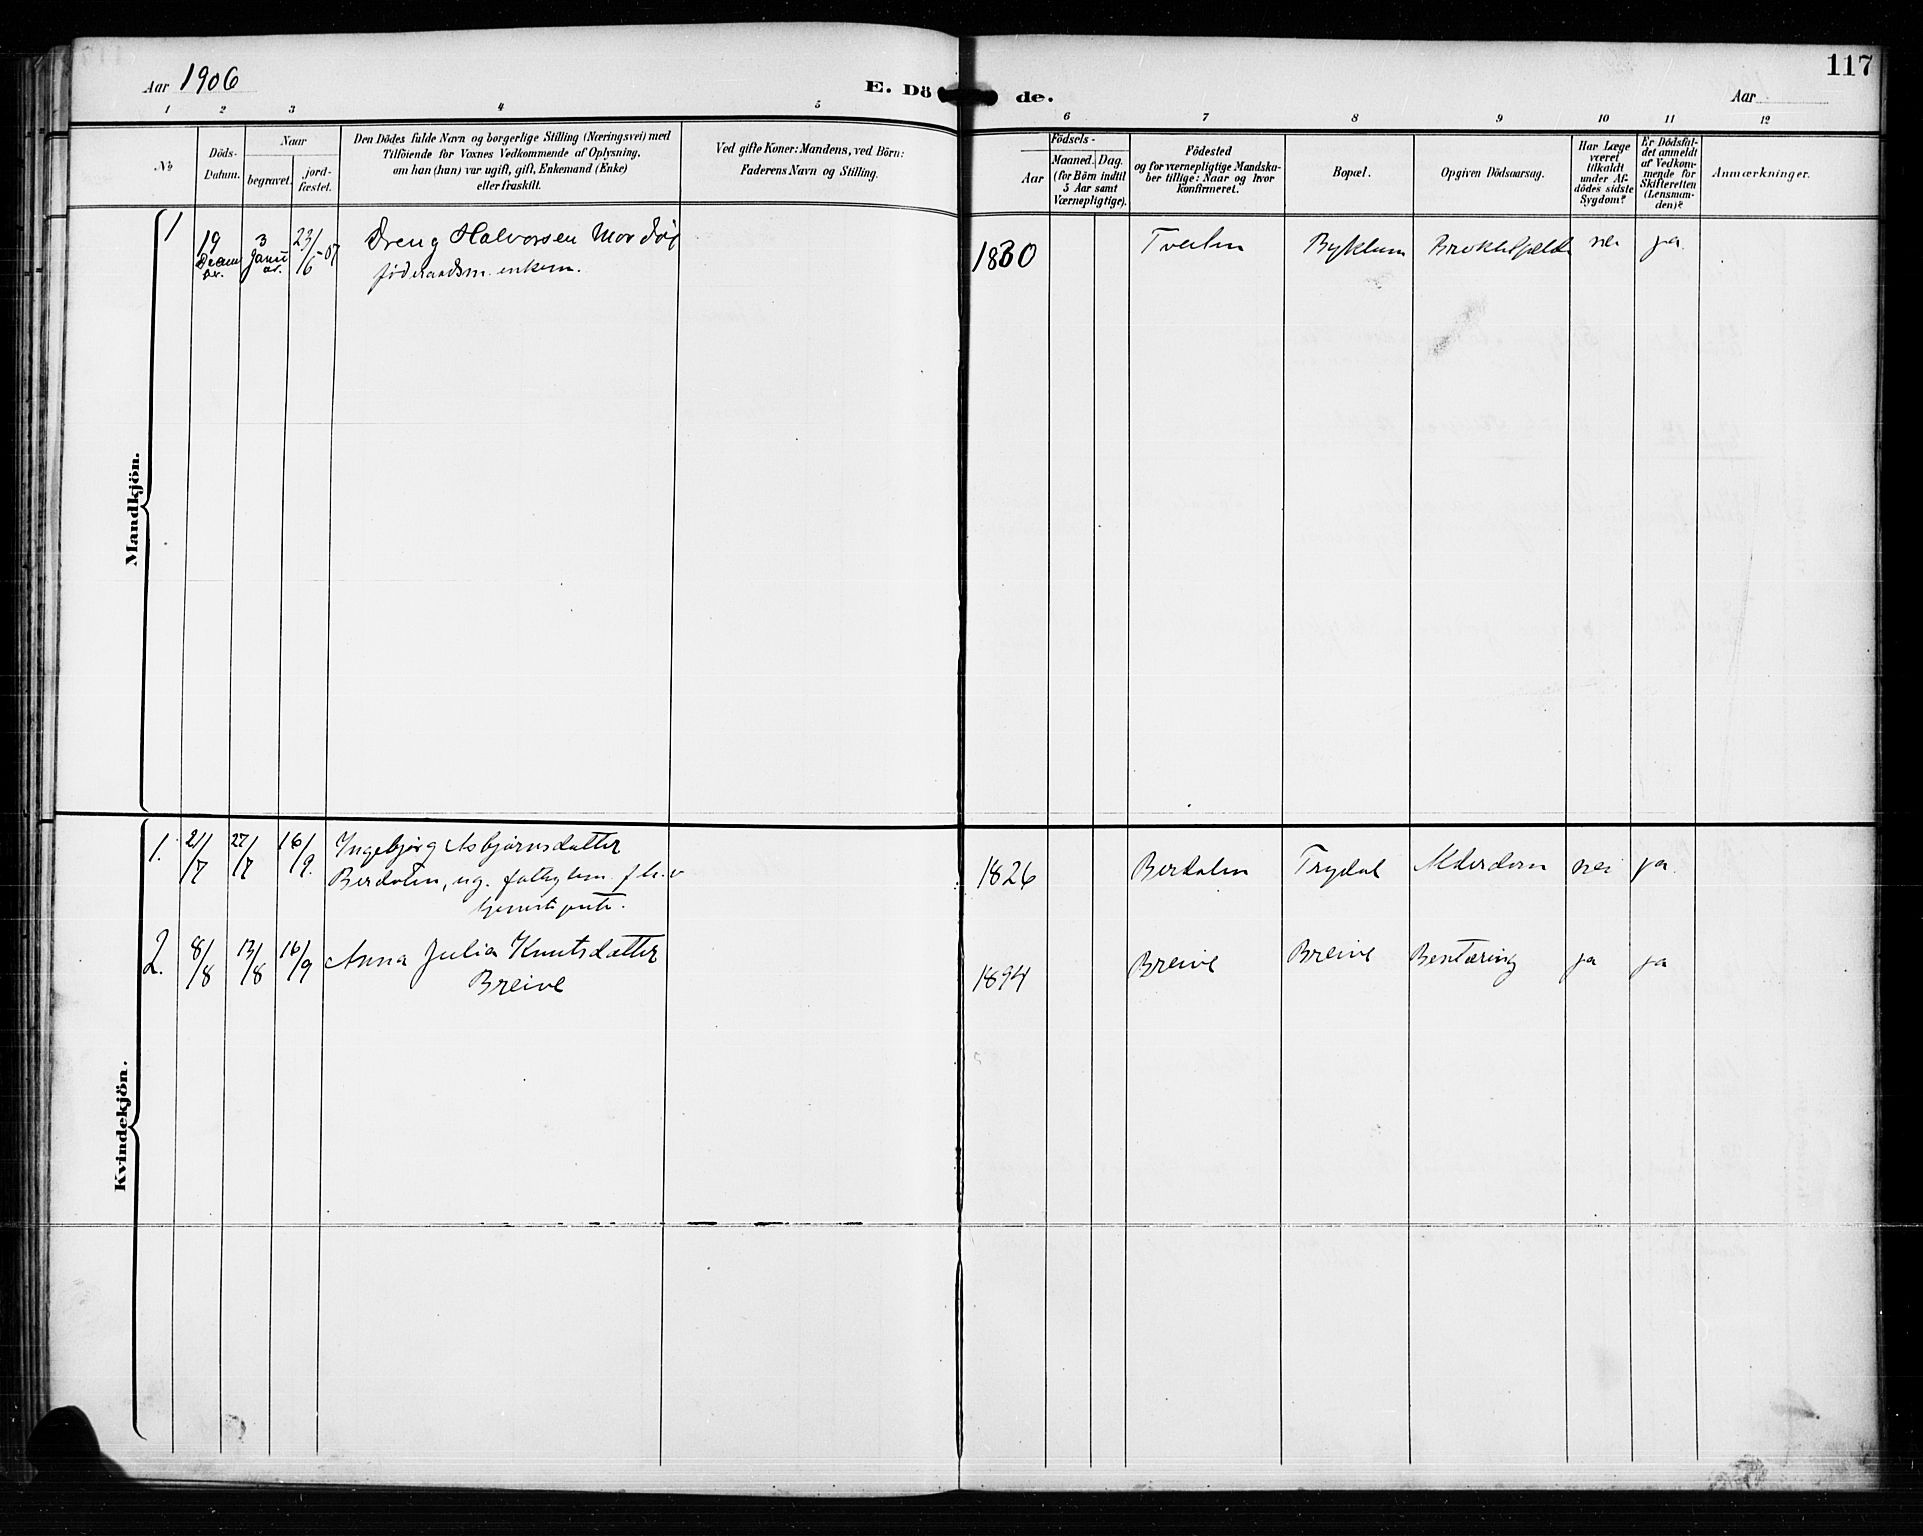 117
Aar 1906
E. Dö
de.
Aar
1 2 3 4 5
6 7 8 9 10 11 12
No
Döds-
Datum.
Naar
begravet.
jord-
fæstet.
Den Dödes fulde Navn og borgerlige Stilling (Næringsvei) med
Tilföiende for Voxnes Vedkommende af Oplysning,
om han (hun) var ugift, gift, Enkemand (Enke)
eller fraskilt.
Ved gifte Koner: Mandens, ved Börn:
Faderens Navn og Stilling.
Födsels-
Aar
Maaned. Dag.
(for Börn indtil
5 Aar samt
Værnepligtige).
Födested
og for værnepligtige Mandska-
ber tillige: Naar og hvor
konfirmeret.
Bopæl.
Opgiven Dödsaarsag.
Har Læge
været
tilkaldt
under Af-
dödes sidste
Sygdom?
Er Dödsfal-
det anmeldt
af Vedkom-
mende for
Skifteretten
(Lensman-
den)?
Anmærkninger.
Mandkjön.
1 19 3 23/6-07 Dreng Halvorsen
föderaadsm. enkem.
1830 Tveiten Byklum nei ja
Kvindekjön.
1. 21/7 27/7 16/9. Ingebjørg Asbjørnsdatter
Berdalen, ug.
1826 Berdalen Trydal Alderdom nei ja
2. 8/8 13/8 16/9 Anna Julia Knutsdatter
Breive
1894 Breive Breive Bentæring ja ja